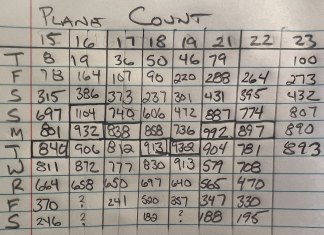 PLANE COUNT
15 16 17 18 19 21 22 23
T 8 19 36 50 46 79 100
F 78 164 107 90 220 288 264 273
S 315 386 373 237 301 431 395 432
S 697 1104 740 606 472 887 774 807
M 801 932 838 868 736 992 897 890
T 840 906 812 913 932 904 781 893
W 811 872 777 830 913 579 708
R 664 658 650 697 640 565 470
F 370 ? 241 520 357 347 330
S 246 ? 182 ? 188 195